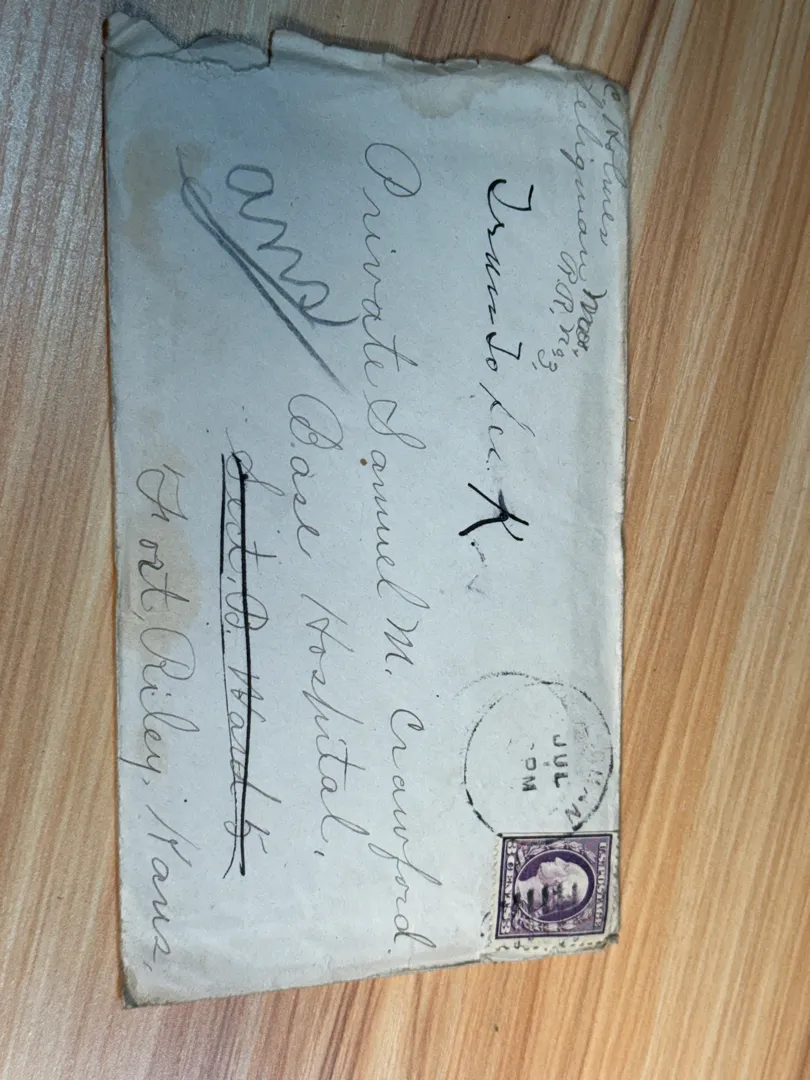 C. Holmes
Seligman Mo.
Trans To Sec. K.
Private Samuel M. Crawford.
Base Hospital,
Sect. B. Ward 5
Fort, Riley, Kans,
ans
JUL
PM
U.S. POSTAGE
3 CENTS 3